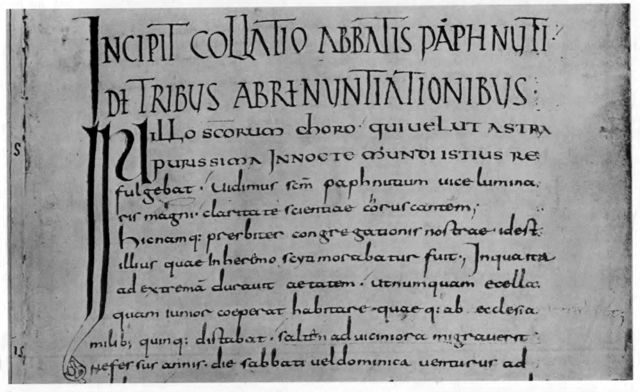 INCIPIT COLLATIO ABBATIS PAPHNUTI·
DE TRIBUS ABRENUNTIATIONIBUS:
IN ILLO SCORUM CHORO· QUI UELUT ASTRA
PURISSIMA IN NOCTE MUNDI ISTIUS RE
fulgebat· Uidimus scm paphnutium uice lumina,
ris magni· claritate scientiae coruscantem;
hic namq: presbiter congregationis nostrae· idest
illius quae In heremo scyti morabatur fuit·, In qua ita
ad extremā durauit aetatem· ut numquam e cella
quam iunior coeperat habitare· quae q: ab ecclesia
milib; quinq: distabat· saltē ad uiciniora migrauerit·
Ne fessus annis· die sabbati uel dominica uenturus ad
S
15